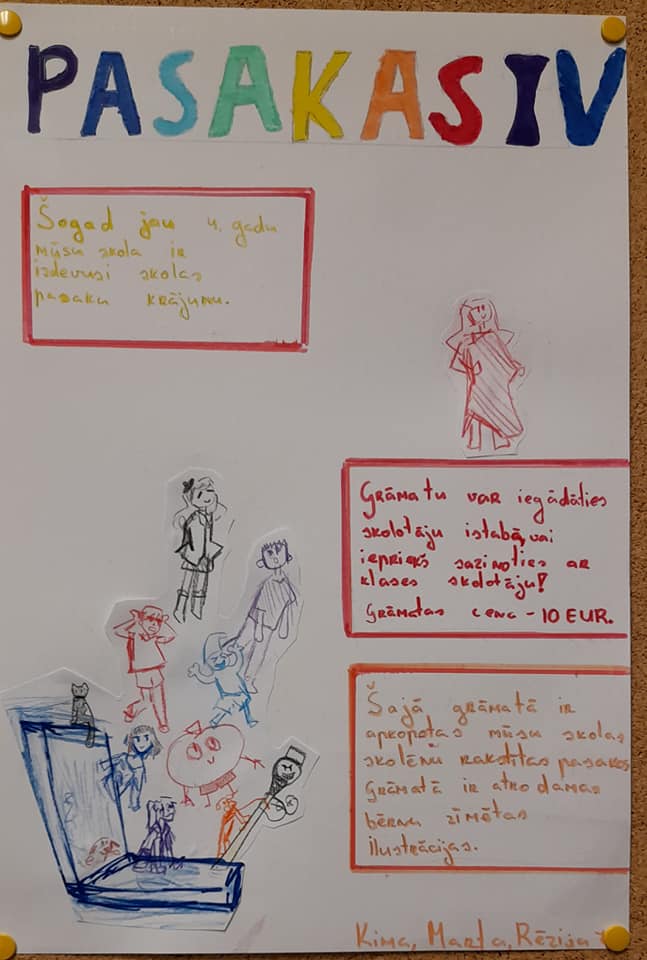 PASAKAS IV
Šogad jau 4. gadu
mūsu skola ir
izdevusi skolas
pasaku krājumu.
Grāmatu var iegādāties
skolotāju istabā, vai
iepriekš sazinoties ar
klases skolotāju!
Grāmatas cena - 10 EUR.
Šajā grāmatā ir
apkopotas mūsu skolas
skolēnu rakstītas pasakas
Grāmatā ir atrodamas
bērnu zīmētas
ilustrācijas.
Kima, Marta, Rēzija